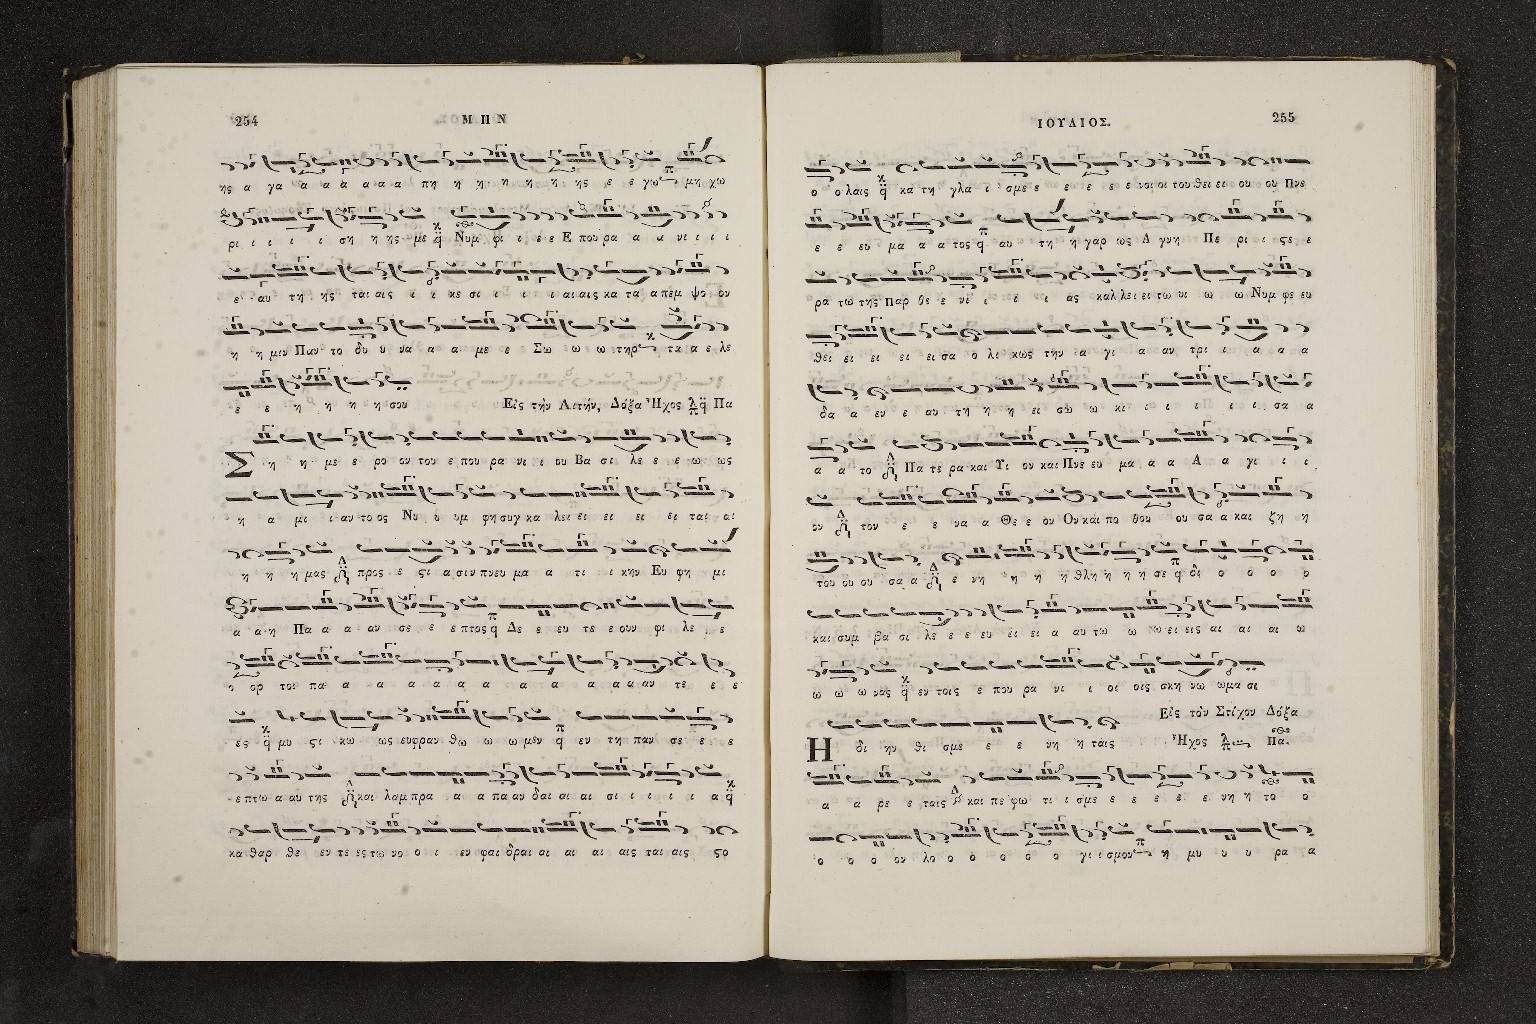 254
ΜΗΝ
ης α γα α α α α α α πη η η η η η ης ε ε γω μη χω
ρι ι ι ι ι ση η ης με Νυμ φι ι ε ε Ε που ρα α α νι ι ι ι
ε αυ τη ης ται αις ι ι κε σι ι ι ι ι αι αις κα τα α πεμ ψο ου
η η μιν Παν το δυ υ να α α με ε Σω ω ω τηρ τα α ε λε
ε ε η η η η σου Εἰς τὴν Λιτήν, Δόξα Ἦχος Πα
Ση η με ε ρο ον του ε που ρα νι ι ου Βα σι λε ε ε ω ως
η α μι ι αν το ος Νυ υ υμ φη συγ κα λει ει ει ει ει ται αι
η η η μας προς ε ςι α σιν πνευ μα α τι ι κην Ευ φη μι
α α η Πα α α αν σε ε ε πτος Δε ε ευ τε ε ουν φι λε ε
ο ορ τοι πα α α α α α α α α α α αν τε ε ε
ες μυ ςι κω ως ευφραν θω ω ω μεν εν τη παν σε ε ε
ε πτω α αυ της και λαμπρα α α πα αυ δαι αι αι σι ι ι ι ι α
κα θαρ θε εν τε ες τω νο ο ι εν φαι δραι αι αι αι αις ται αις ςο
ΙΟΥΛΙΟΣ.
255
ο ο λαις κα τη γλα ι σμε ε ε ε ε ε νοι οι του θει ει ου ου Πνε
ε ε ευ μα α α τος αυ τη η γαρ ως Α γνη Πε ρι ι ςε ε
ρα τω της Παρ θε ε νι ι ι ι ας καλ λει ει τω υι ω ω Νυμ φε ευ
θει ει ει ει ει σα ο λι κως την α γι α αν τρι ι α α α
δα α ευ ε αυ τη η η ει σω ω κι ι ι ι ι ι σα α
α α το Πα τε ρα και Υι ον και Πνε ευ μα α α Α α γι ι ι
ον τον ε ε να α Θε ε ον Ου και πο θου ου σα α και ζη η
του ου ου σα α ε νη η η η θλη η η η σε δι ο ο ο ο
και συμ βα σι λε ε ε ευ ει ει α αυ τω ω ω ει εις αι αι αι ω
ω ω ω νας εν τοις ε που ρα νι ι οι οις σκη νω ωμα σι
Εἰς τὸν Στίχον Δόξα
Η δι ην θι σμε ε ε νη η ταις Ἦχος Πα.
α α ρε ε ταις και πε φω τι ι σμε ε ε ε ε ε νη η το ο
ο ο ο ον λο ο ο ο ο ο γι ι σμον η μυ υ υ ρα α